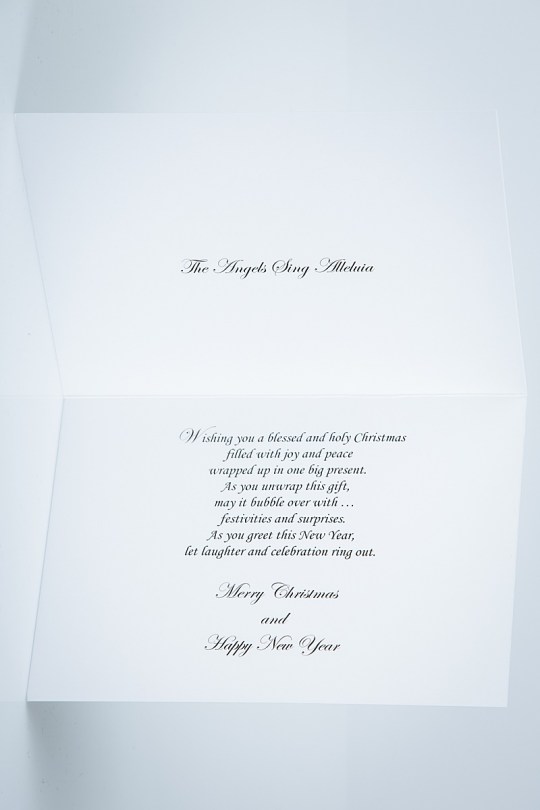 The Angels Sing Alleluia
Wishing you a blessed and holy Christmas
filled with joy and peace
wrapped up in one big present.
As you unwrap this gift,
may it bubble over with …
festivities and surprises.
As you greet this New Year,
let laughter and celebration ring out.
Merry Christmas
and
Happy New Year